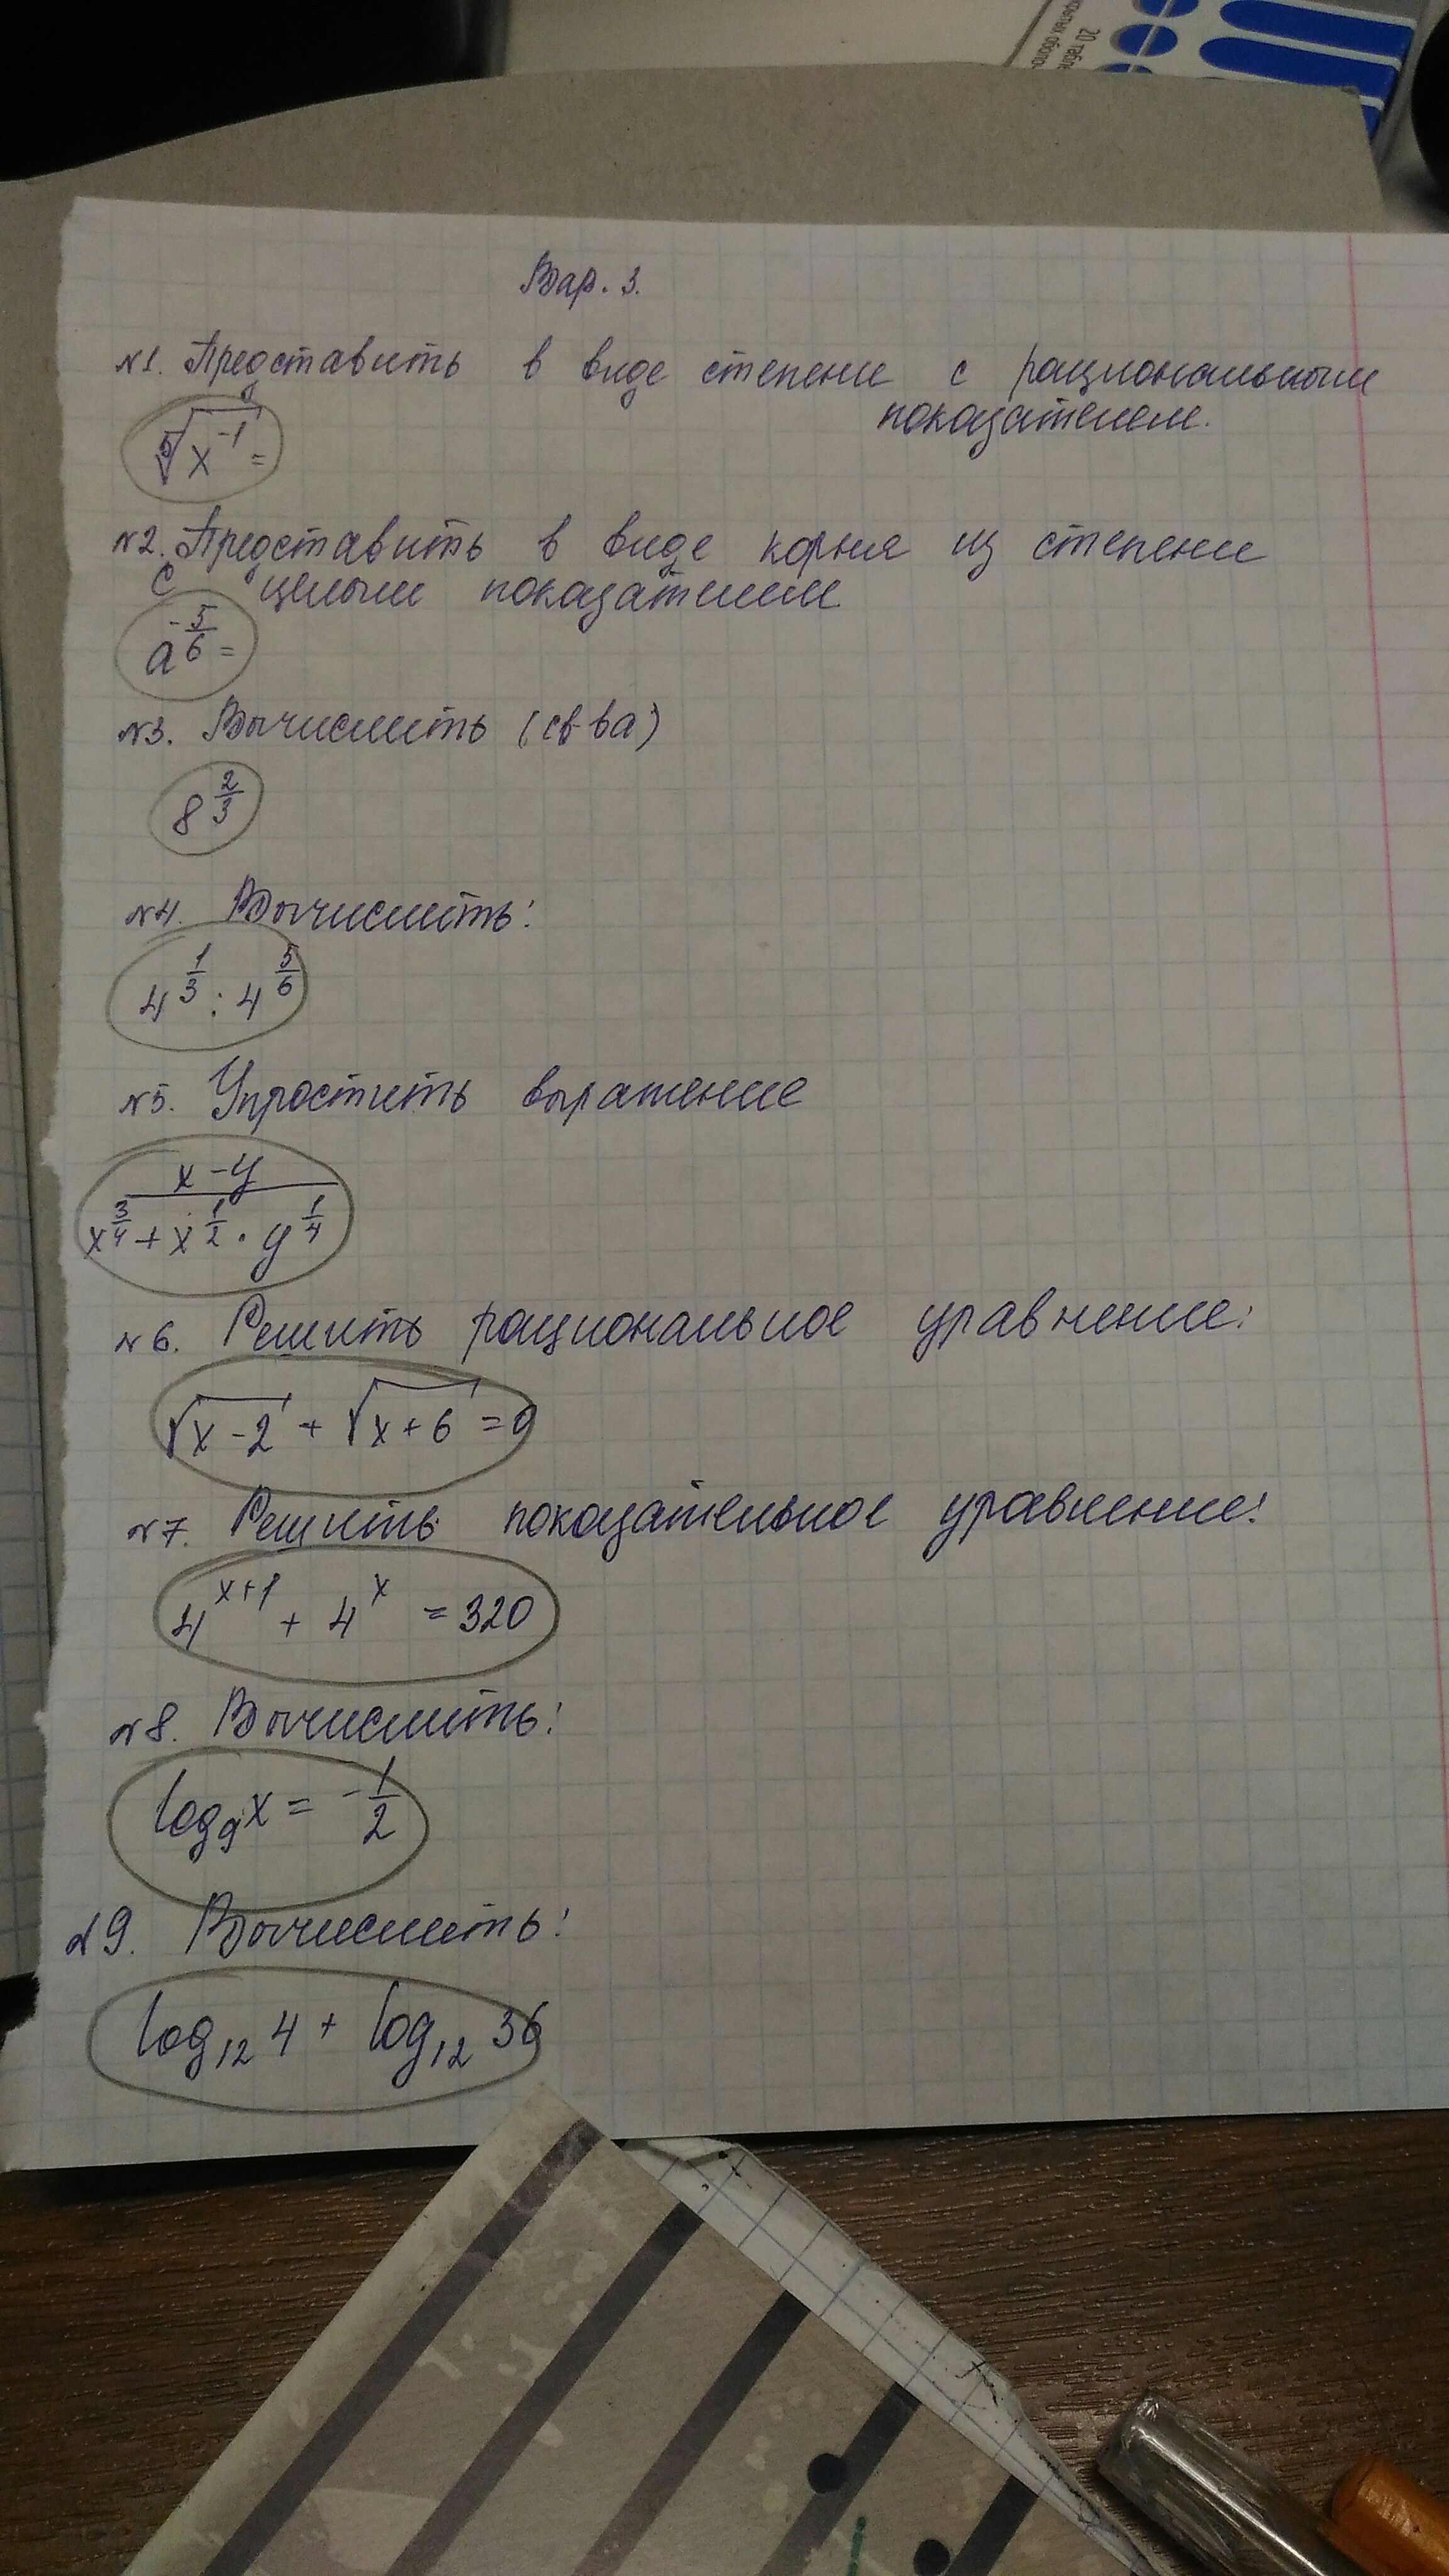 20 табле
Вар. 3.
№1. Представить в виде степени с рациональным
показателем.
⁵√x⁻¹ =
№2. Представить в виде корня из степени
с целым показателем
a^(-5/6) =
№3. Вычислить (св-ва)
8^(2/3)
№4. Вычислить:
4^(1/3) : 4^(5/6)
№5. Упростить выражение
(x - y)/(x^(3/4) + x^(1/2) · y^(1/4))
№6. Решить рациональное уравнение:
√(x-2) + √(x+6) = 0
№7. Решить показательное уравнение:
4^(x+1) + 4^x = 320
№8. Вычислить:
log₉x = -1/2
№9. Вычислить:
log₁₂4 + log₁₂36